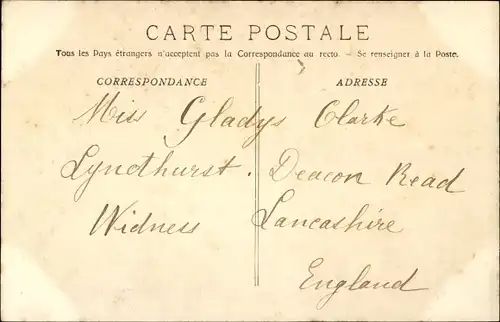 CARTE POSTALE
Tous les Pays étrangers n'acceptent pas la Correspondance au recto. - Se renseigner à la Poste.
CORRESPONDANCE ADRESSE
Miss Gladys Clarke
Lyndthurst. Deacon Road
Widness Lancashire
England